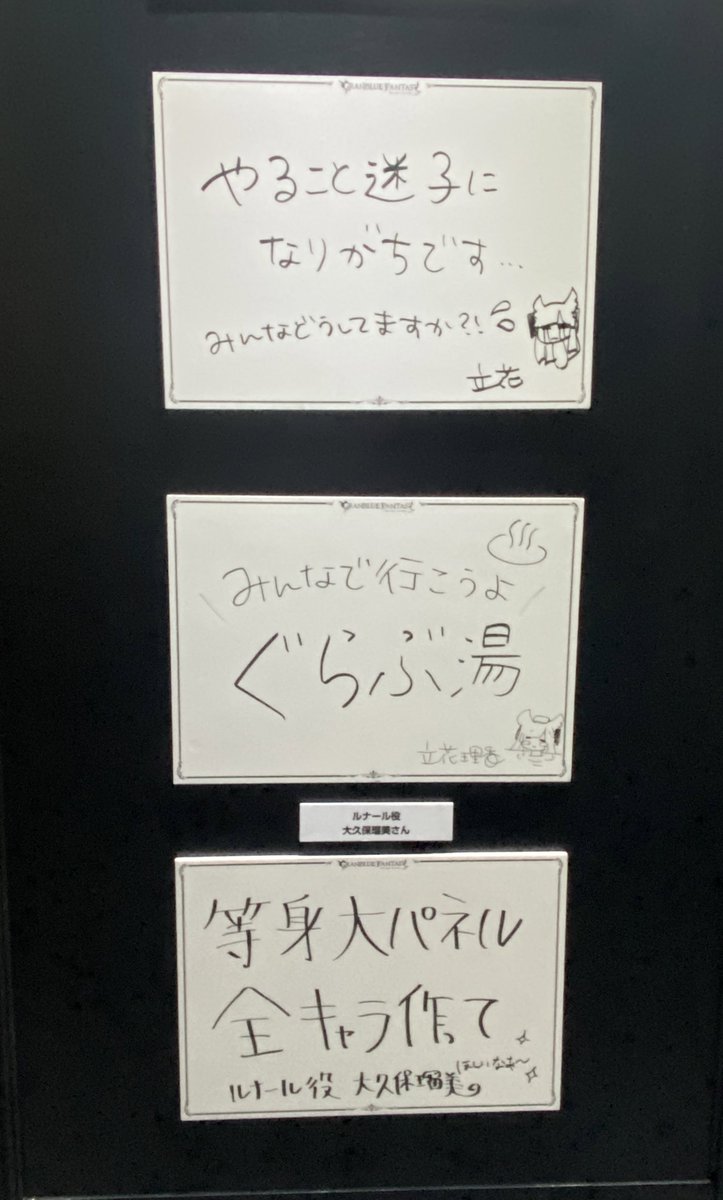 GRANBLUE FANTASY
やること迷子に
なりがちです…
みんなどうしてますか?!
立花
GRANBLUE FANTASY
みんなで行こうよ
ぐらぶ湯
立花理香
ルナール役
大久保瑠美さん
GRANBLUE FANTASY
等身大パネル
全キャラ作って
ほしいなあ〜
ルナール役 大久保瑠美